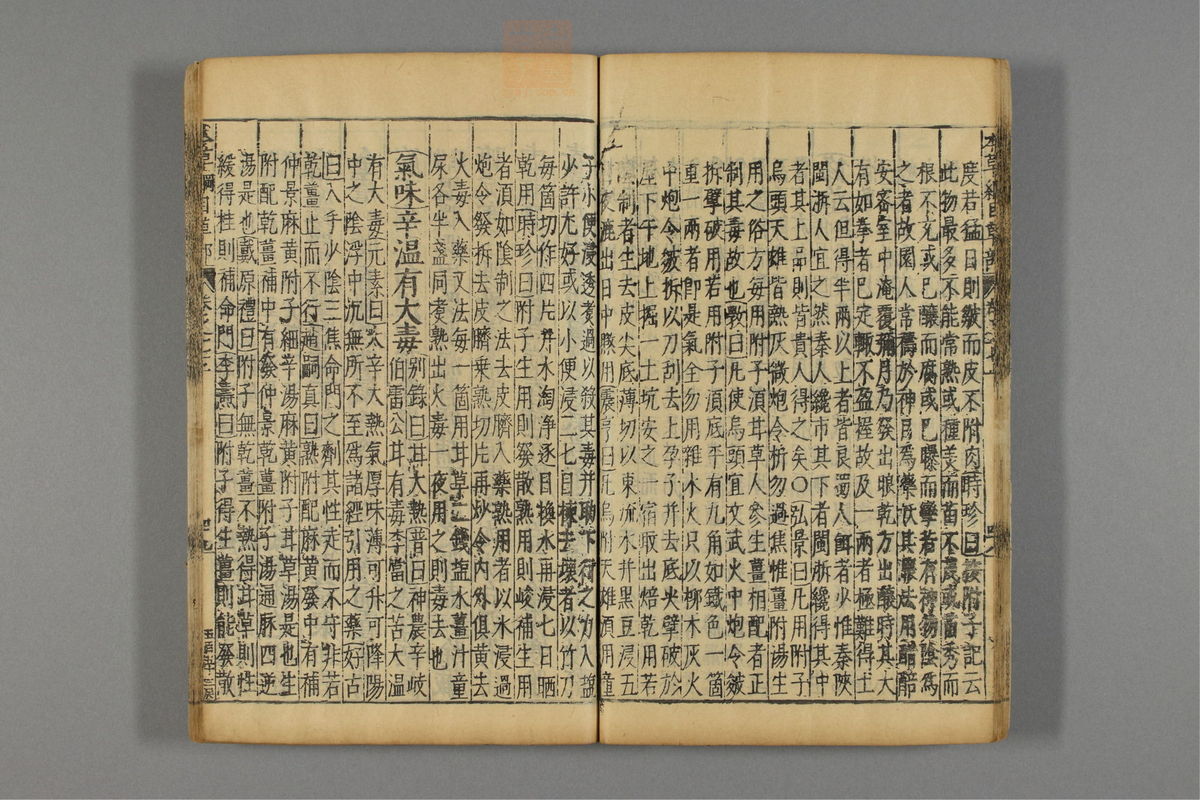 度若猛日則皺而皮不附肉時珍曰按附子記云
此物最多不能常熟或種美而苗不茂或苗秀而
根不充或已釀而腐或已曝而攣若有神物陰爲
之者故園人常禱於神目爲藥妖其釀法用醋醅
安密室中淹覆彌月乃發出眼乾方出釀時其大
有如拳者已定輒不盈握故及一兩者極難得土
人云但得半兩以上者皆良蜀人餌者少惟秦陝
閩浙人宜之然秦人纔市其下者閩浙纔得其中
者其上品則皆貴人得之矣〇弘景曰凡用附子
烏頭天雄皆熱灰微炮令拆勿過焦惟薑附湯生
用之俗方每用附子須甘草人參生薑相配者正
制其毒故也斅曰凡使烏頭宜文武火中炮令皺
拆擘破用若用附子須底平有九角如鐵色一箇
重一兩者即是氣全勿用雜水火只以柳木灰火
中炮令皺拆以刀刮去上孕子并去底尖擘破於
屋下午地上掘一土坑安之一宿取出焙乾用若
陰制者生去皮尖底薄切以東流水并黑豆浸五
日夜漉出日中曬用震亨曰凡烏附天雄須用童
子小便浸透煮過以殺其毒并助下行之力入鹽
少許尤好或以小便浸二七日揀去壞者以竹刀
每箇切作四片井水淘淨逐日換水再浸七日晒
乾用時珍曰附子生用則發散熟用則峻補生用
者須如陰制之法去皮臍入藥熟用者以水浸過
炮令發拆去皮臍乗熱切片再炒令內外俱黃去
火毒入藥又法每一箇用甘草二錢鹽水薑汁童
尿各半盞同煮熟出火毒一夜用之則毒去也
氣味辛温有大毒別錄曰甘大熱普曰神農辛岐
伯雷公甘有毒李當之苦大温
有大毒元素曰大辛大熱氣厚味薄可升可降陽
中之陰浮中沉無所不至爲諸經引用之藥好古
曰入手少陰三焦命門之劑其性走而不守非若
乾薑止而不行趙嗣真曰熟附配麻黃發中有補
仲景麻黃附子細辛湯麻黃附子甘草湯是也生
附配乾薑補中有發仲景乾薑附子湯通脉四逆
湯是也戴原禮曰附子無乾薑不熱得甘草則性
緩得桂則補命門李燾曰附子得生薑則能發散